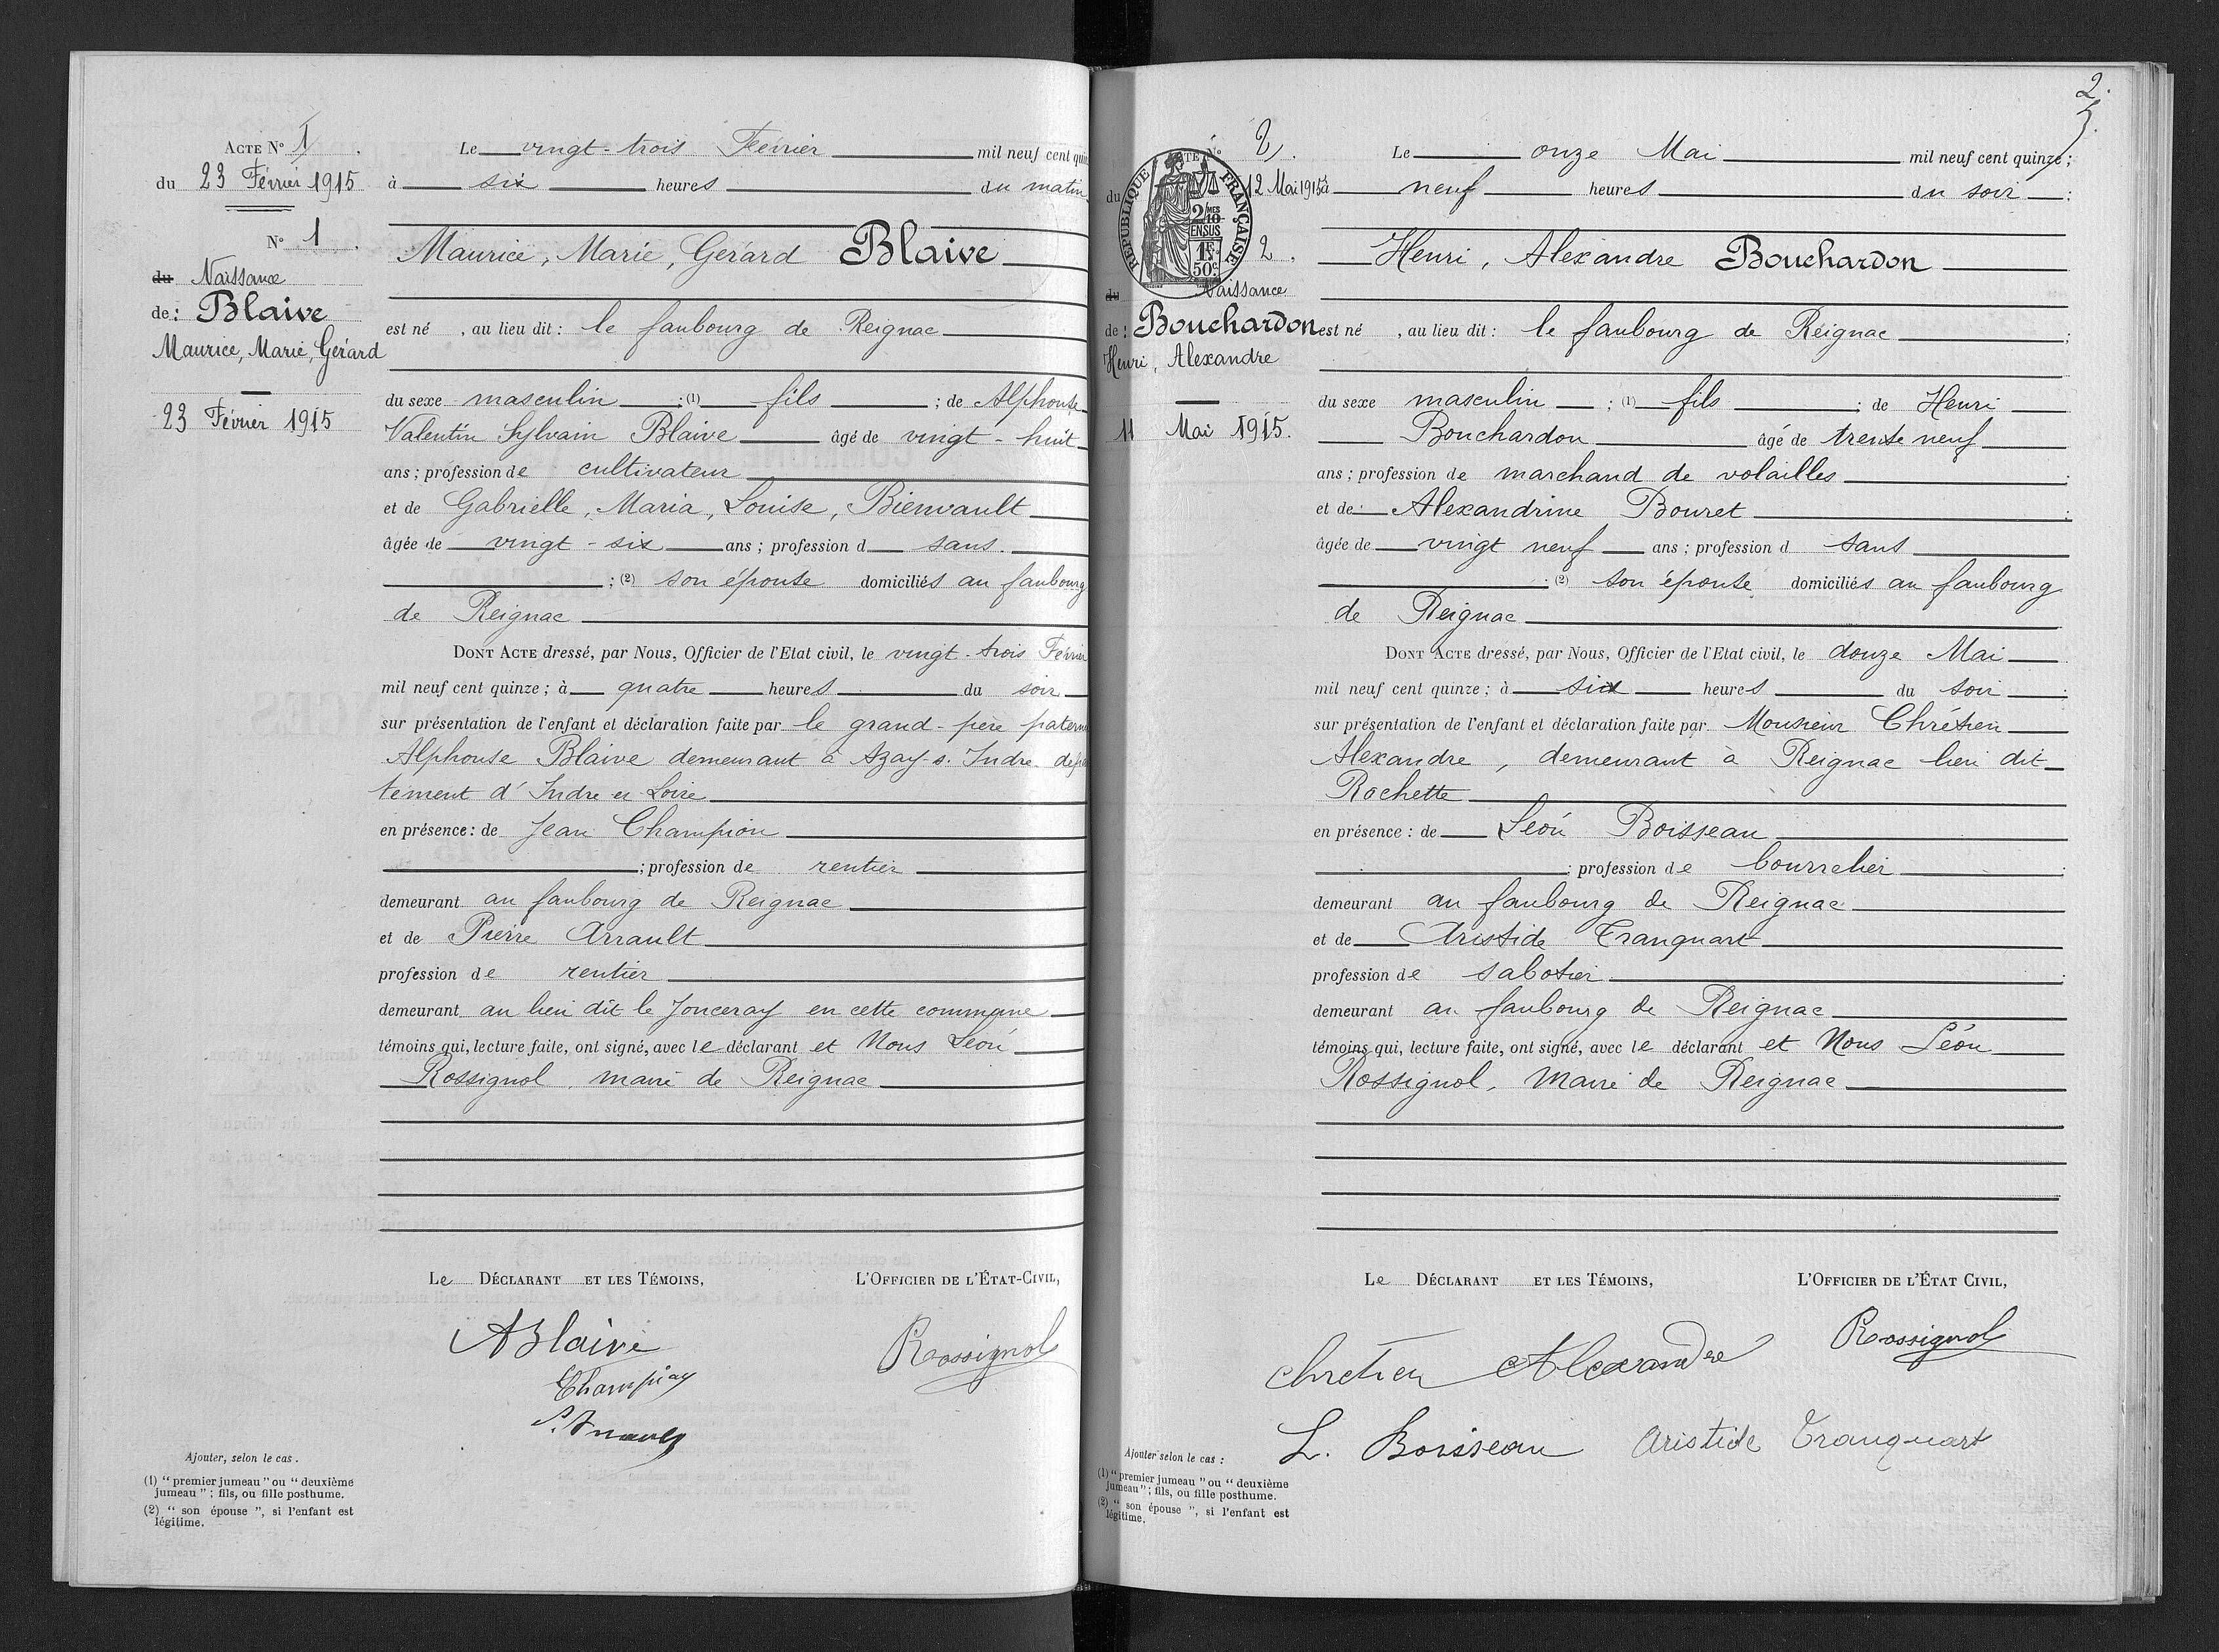 Acte N° 1.
du 23 Février 1915
N° 1.
du Naissance
de: Blaive
Maurice, Marie, Gérard
23 Février 1915
Le vingt-trois Février mil neuf cent quin
à six heures du matin
Maurice, Marie, Gérard Blaive
est né , au lieu dit: le faubourg de Reignac
du sexe masculin ; (1) fils ; de Alphonse
Valentin Sylvain Blaive âgé de vingt-huit
ans; profession de cultivateur
et de Gabrielle, Maria, Louise, Bienvault
âgée de vingt-six ans; profession d sans.
; (2) son épouse domiciliés au faubourg
de Reignac
Dont Acte dressé, par Nous, Officier de l'Etat civil, le vingt-trois Février
mil neuf cent quinze; à quatre heures du soir
sur présentation de l'enfant et déclaration faite par le grand-père patern
Alphonse Blaive demeurant à Azay-s. Indre dépa
tement d'Indre et Loire
en présence: de Jean Champion
; profession de rentier
demeurant au faubourg de Reignac
et de Pierre Arrault
profession de rentier
demeurant au lieu dit le Jonceray en cette commune
témoins qui, lecture faite, ont signé, avec le déclarant et Nous Léon
Rossignol, maire de Reignac
Le Déclarant et les Témoins,
L'Officier de l'État-Civil,
ABlaive
Rossignol
Champion
P. Arrault
Ajouter, selon le cas.
(1) "premier jumeau" ou "deuxième
jumeau"; fils, ou fille posthume.
(2) "son épouse", si l'enfant est
légitime.
2.
3.
N° 2.
du 12 Mai 1915
RÉPUBLIQUE FRANÇAISE
2/10 MES
EN SUS
1F
50c
2.
du Naissance
de: Bouchardon
Henri, Alexandre
11 Mai 1915.
Le onze Mai mil neuf cent quinze;
à neuf heures du soir :
Henri, Alexandre Bouchardon
est né , au lieu dit: le faubourg de Reignac ;
du sexe masculin ; (1) fils ; de Henri
Bouchardon âgé de trente neuf
ans; profession de marchand de volailles
et de: Alexandrine Bouret
âgée de vingt neuf ans; profession d sans
; (2) son épouse domiciliés au faubourg
de Reignac
Dont Acte dressé, par Nous, Officier de l'Etat civil, le douze Mai
mil neuf cent quinze; à six heures du soir ;
sur présentation de l'enfant et déclaration faite par Monsieur Chrétien
Alexandre, demeurant à Reignac lieu dit
Rochette
en présence: de Léon Boisseau
; profession de bourrelier
demeurant au faubourg de Reignac
et de Aristide Tranquart
profession de sabotier
demeurant au faubourg de Reignac
témoins qui, lecture faite, ont signé, avec le déclarant et Nous Léon
Rossignol, Maire de Reignac
Le Déclarant et les Témoins,
L'Officier de l'État Civil,
Rossignol
Chretien Alexandre
L. Boisseau Aristide Tranquart
Ajouter selon le cas:
(1) "premier jumeau" ou "deuxième
jumeau"; fils, ou fille posthume.
(2) "son épouse", si l'enfant est
légitime.